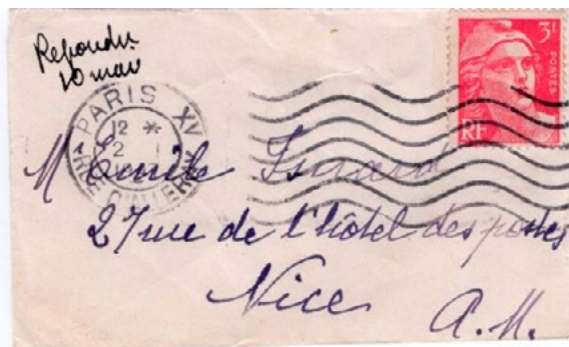 Repondu
10 mar
PARIS XV
12 *
2
RUE D'ALLERAY
3F
POSTES
RF
M Emile Isnard
27 rue de l'hôtel des postes
Nice
A. M.